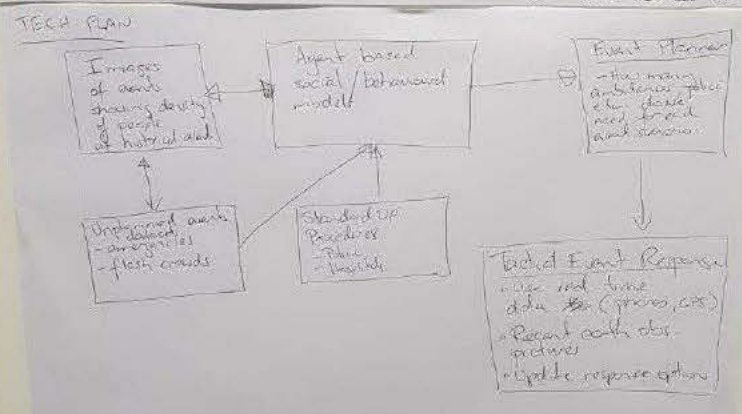 TECH PLAN
Images
of events
showing density
of people
at historical
Agent based
social / behavioural
models
Event Planner
- How many
ambulances, police
etc.
need for each
event scenario.
Unplanned events
dataset
- emergencies
- flash crowds
Standard Op
Procedures
- Police
- Hospitals
Tactical Event Response
- Use real time
data (phones, GPS)
- Recent earth obs.
pictures
- Update response options